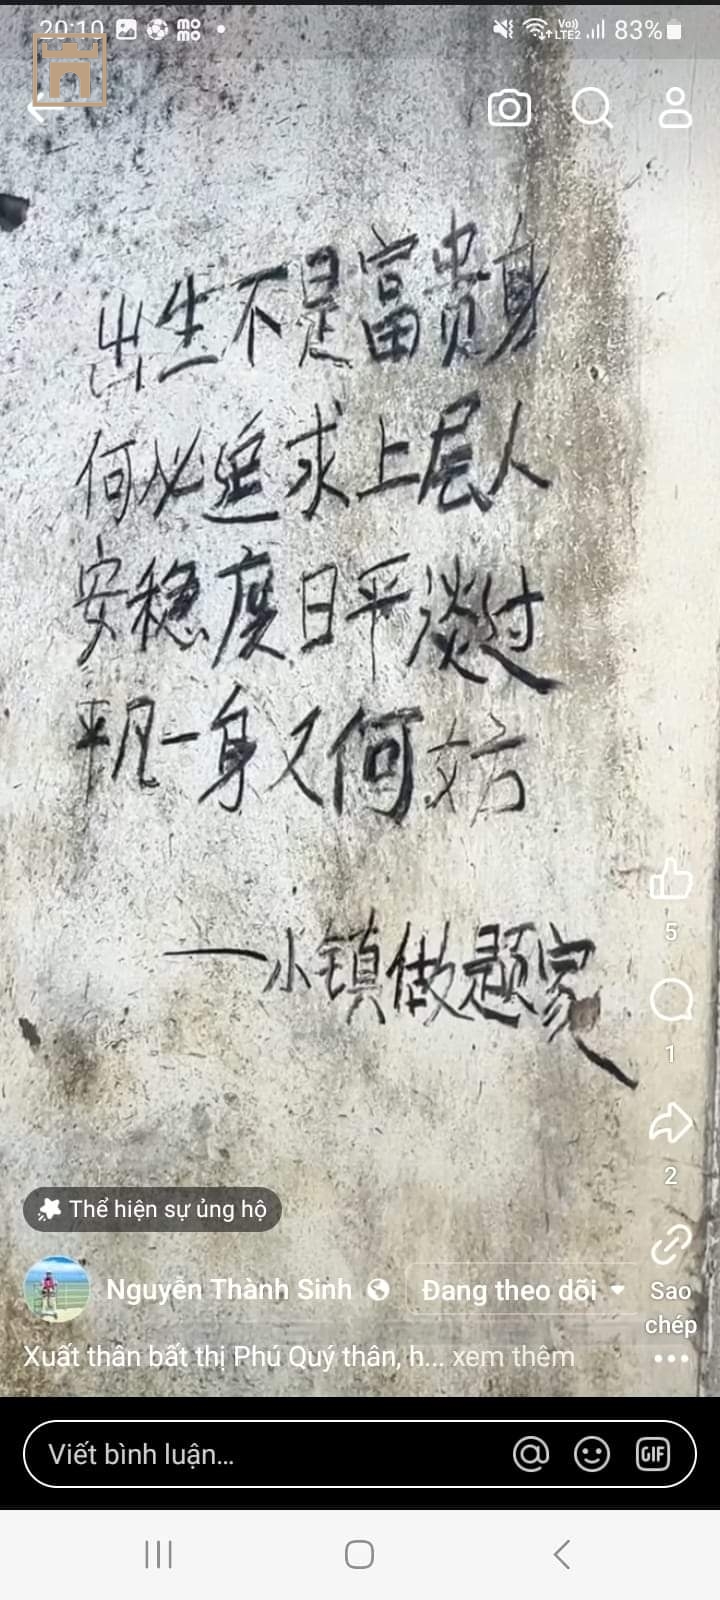 20:10 momo Vo)) LTE2 83%
出生不是富贵身
何必追求上层人
安稳度日平淡过
平凡一身又何妨
——小镇做题家
5
1
2
Thể hiện sự ủng hộ
Nguyễn Thành Sinh Đang theo dõi
Sao chép
Xuất thân bất thị Phú Quý thân, h... xem thêm
Viết bình luận...
GIF